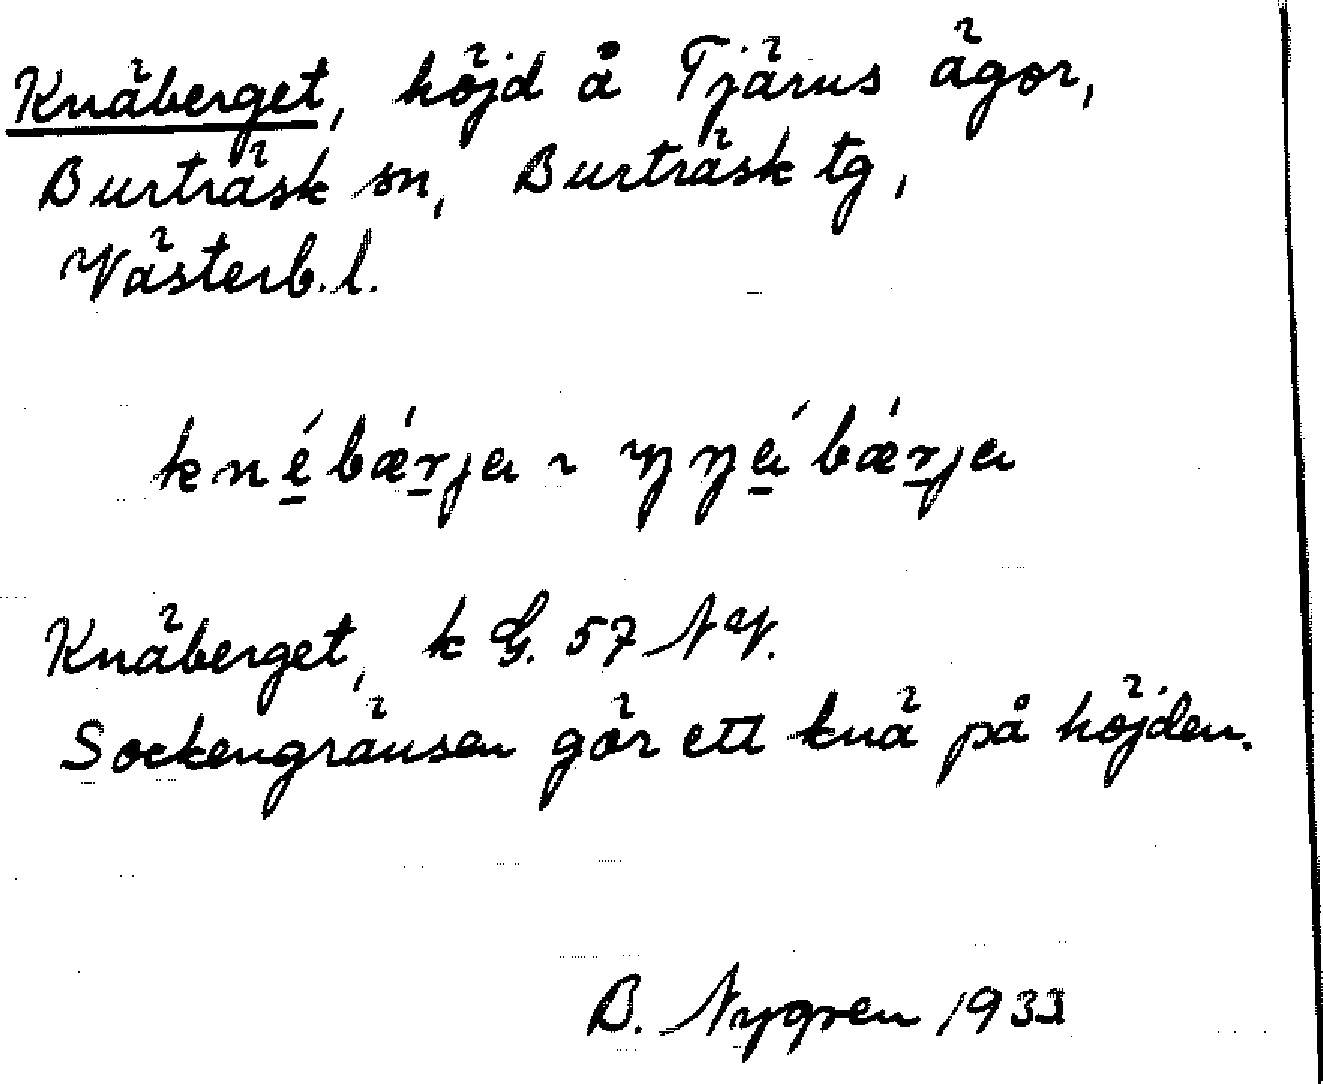 Knäberget, höjd å Tjärns ägor,
Burträsk sn, Burträsk tg,
Västerb. l.
knébǽrja ~ ŋŋébǽrja
Knäberget, k G. 57 NV.
Sockengränsen gör ett knä på höjden.
B. Nygren 1933